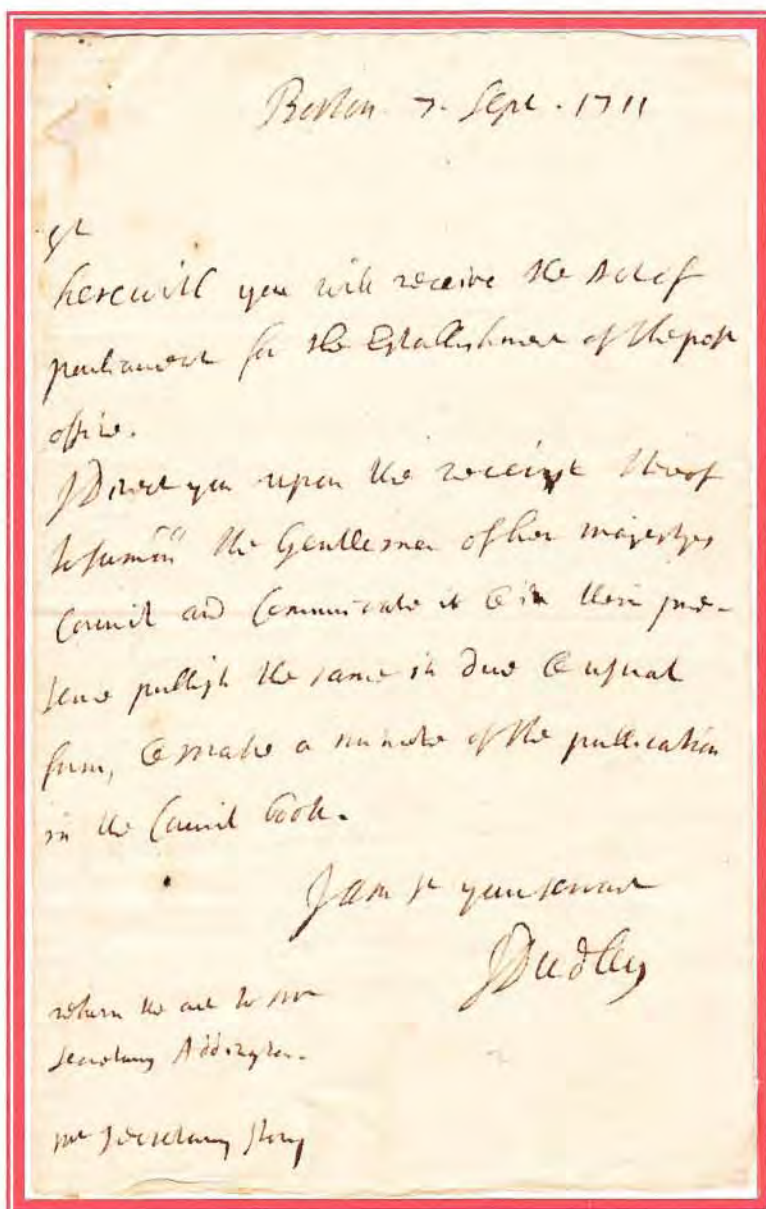 Boston 7. Sept. 1711
Sr
herewith you will receive the Act of
parliament for the Establishment of the post
office.
I Direct you upon the receipt thereof
to summon the Gentlemen of her majestyes
Council and Communicate it & in their pre-
sence publish the same in due & usual
form, & make a minute of the publication
in the Council book.
I am Sr your servant
J Dudley
return the act to mr
Secretary Addington.
mr Secretary Story